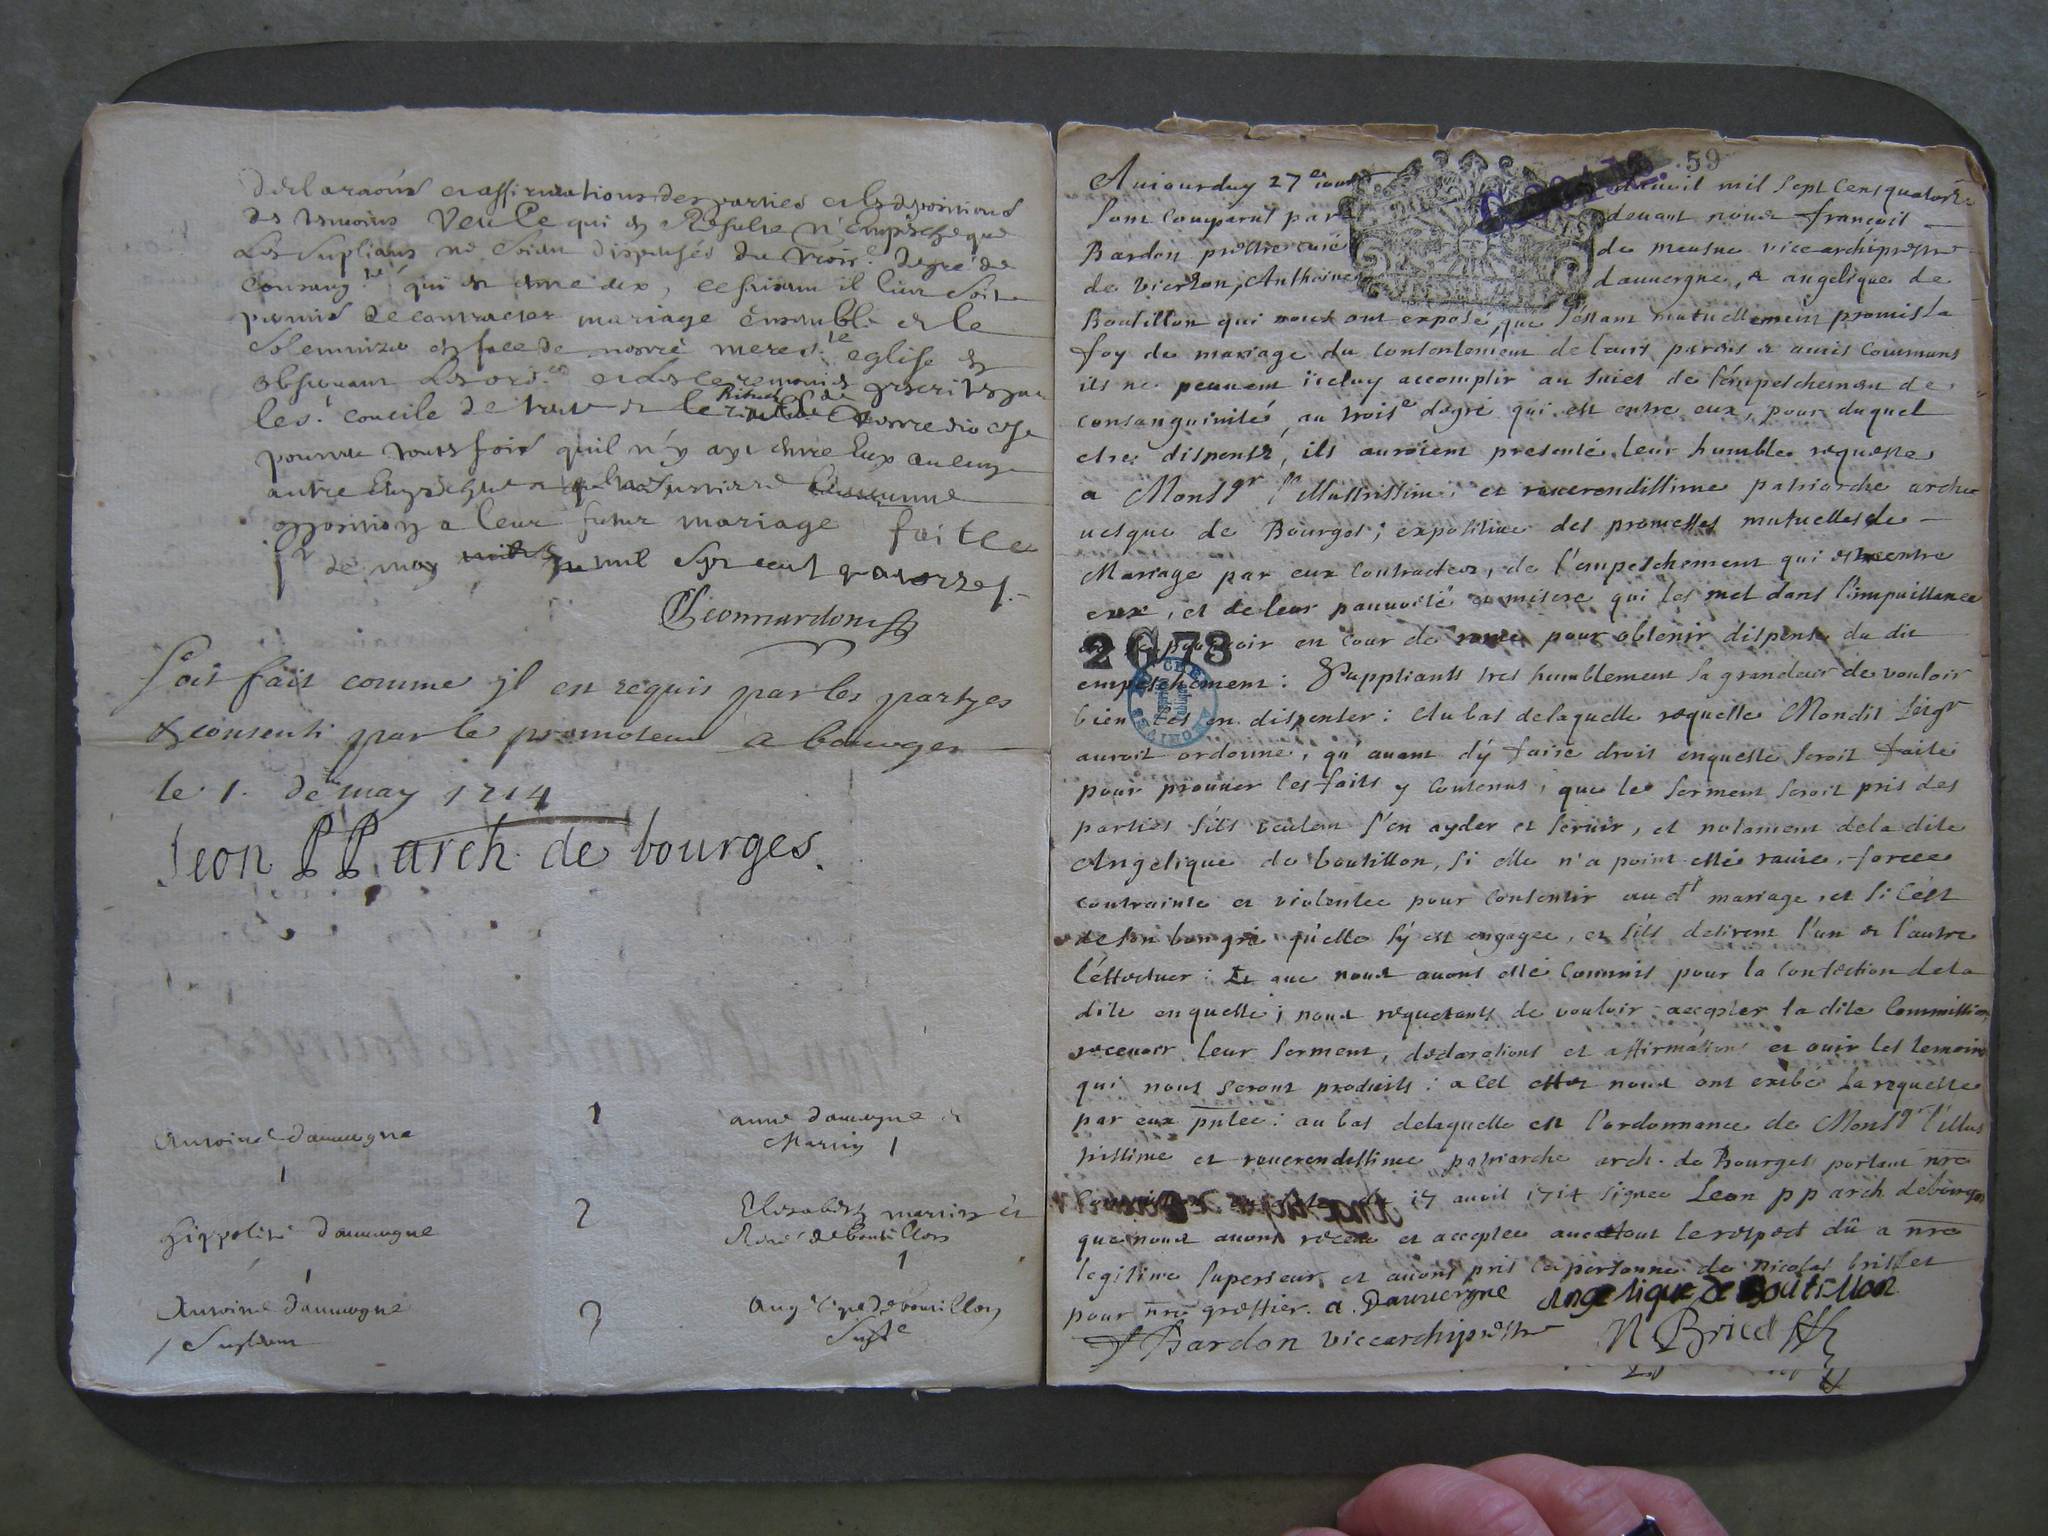 declara͠ons et affirmations des parties et les depositions
de temoins Veu Ce qui en Resulte n'empesche que
Les supliants ne soient dispensés du trois.e degré de
consang.té qui est entre eux, ce faisant il leur soit
permis de contracter mariage ensemble et le
solemnizer en face de nostre mere s.te eglise en
observant Les ord. et Les ceremonies prescrites par
les concile de trente et le Rituel de nostre diocese
pourveu toutefois quil n'y aye entre Eux aucung
autre Empeschement
opposition a leur futur mariage faitle
p.r de may mil sept cent quatorze.
Soit fait comme il en requis par les partyes
& consenti par le promoteur a bourges
le 1. de may 1714
Leon PP arch. de bourges.
Antoine dauvergne 1 anne dauvergne et
Martin 1
1
hippolite dauvergne 2 Elisabeth martin et
René de boutillon
1
1
Antoine dauvergne 3 Angelique de boutillon
Supliant Supte
59
Auiourduy 27e iour dauvil mil sept cens quatorze
sont comparut par deuant nous françois
Bardon prestre curé de meusne vice archiprestre
de vierzon, Anthoine dauvergne, & angelique de
Boutillon qui nous ont exposé, que s'estant mutuellement promis la
foy de mariage du consentement de leurs parens et amis communs
ils ne peuvent iceluy accomplir au suiet de l'empeschement de
consanguinité au troise degré qui est entre eux, pour duquel
estre dispensé, ils auroient presenté leur humble requeste
a Monsgr l'illustrissime et reverendissime patriarche arche
uesque de Bourges; expositive des promesses mutuelles de
Mariage par eux contractés, de l'empeschement qui est entre
eux, et de leur pauureté et misere qui les met dans l'impuissance
pouvoir en cour de rome pour obtenir dispense du dit
2673
empeschement: suppliants tres humblement sa grandeur de vouloir
bien les en dispenser: Au bas de laquelle requeste Mondit seigr
auroit ordonné, qu'auant d'y faire droit enqueste seroit faite
pour prouuer les faits y contenus, que le serment seroit pris des
parties s'ils veulent s'en ayder et seruir, et notament de la dite
Angelique de boutillon, si elle n'a point esté rauie, forcee
contrainte et violentee pour consentir au dt mariage, et si c'est
de son bon gré qu'elle s'y est engagee, et s'ils desirent l'un et l'autre
l'effectuer: Et que nous auons esté commis pour la confection de la
dite enqueste; nous requerants de vouloir accepter la dite Commission
receuoir leur serment, declarations et affirmations et ouir les temoins
qui nous seront produits: a cet effet nous ont exibé la requeste
par eux pn̄tee: au bas delaquelle est l'ordonnance de Monsgr l'illus
trissime et reuerendissime patriarche arch. de Bourges portant nr̄e
17 auvil 1714 signee Leon pp arch. de bourges
que nous auons receue et acceptee auec tout le respect dû a nr̄e
legitime superieur et auons pris la personne de nicolas brisset
pour nr̄e greffier. a. Dauvergne Angelique de Boutillon
F Bardon viccarchiprestre N Bricet